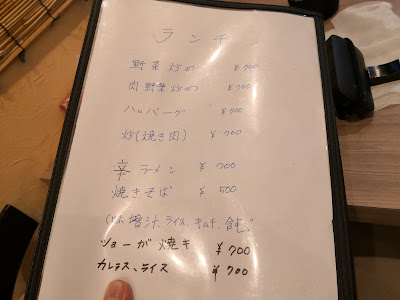 ランチ
野菜炒め ¥700
肉野菜炒め ¥700
ハンバーグ ¥700
炒(焼き肉) ¥700
辛ラーメン ¥700
焼きそば ¥500
(味噌汁、ライス キムチ、含む)
ショーが焼き ¥700
カレテス、ライス ¥700